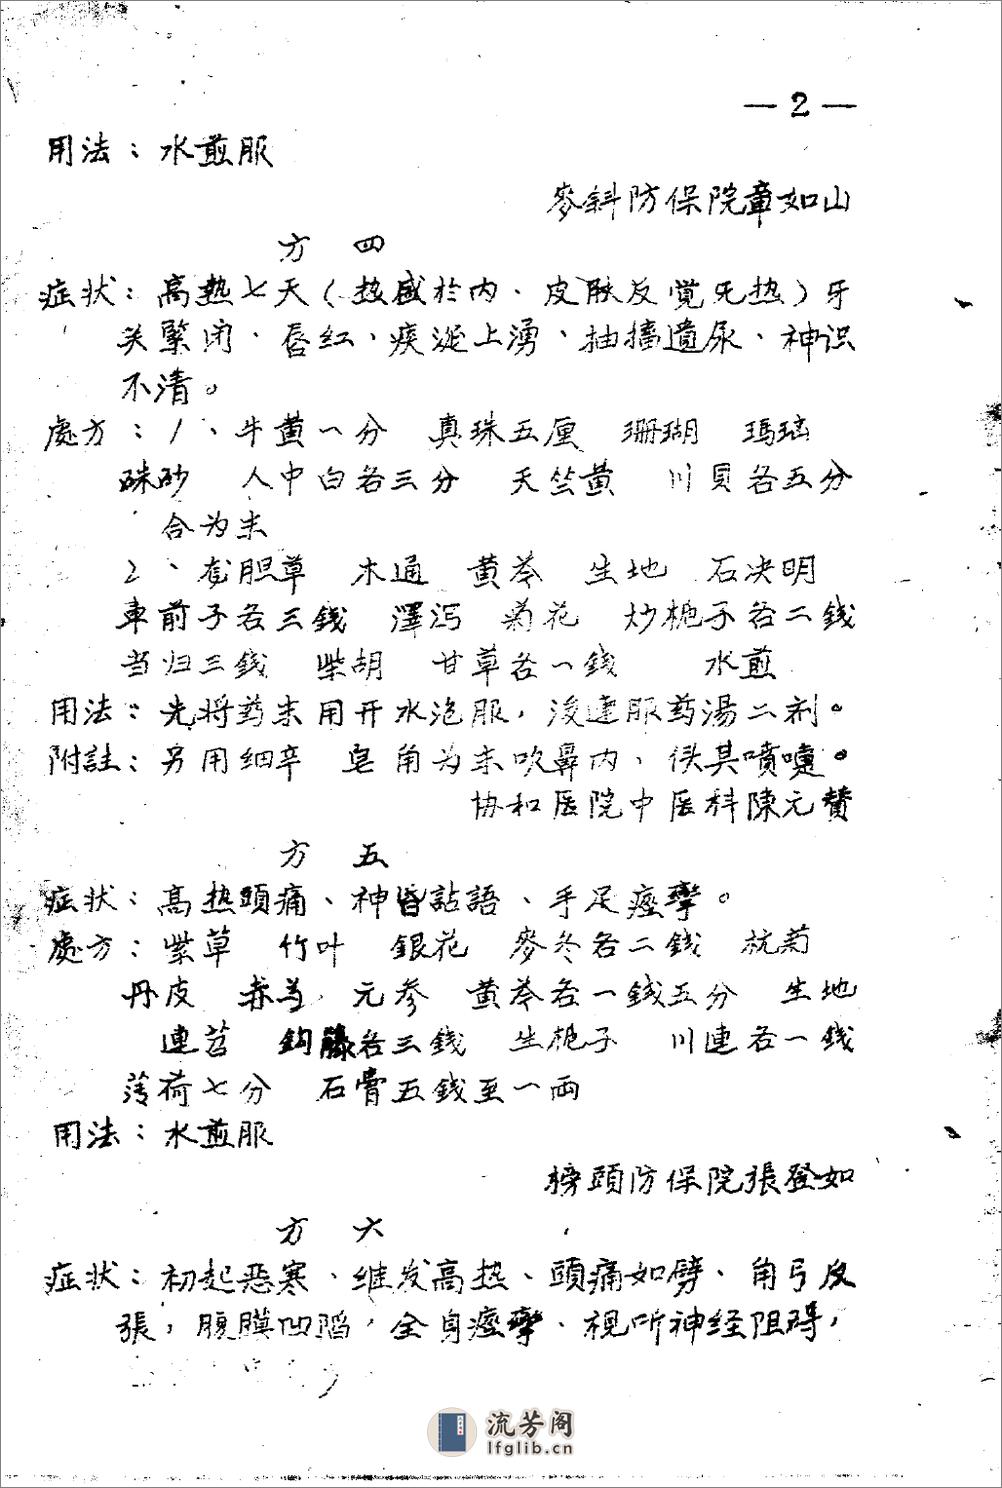 —2—
用法：水煎服
麥斜防保院章如山
方 四
症状：高熱七天（热感於内、皮肤反覚无热）牙
关緊闭、唇紅、痰涎上湧、抽搐遺尿、神识
不清。
處方：1、牛黄一分 真珠五厘 珊瑚 瑪瑙
硃砂 人中白各三分 天竺黄 川貝各五分
合为末
2、龙胆草 木通 黄芩 生地 石决明
車前子各三錢 澤泻 菊花 炒梔子各二錢
当归三錢 柴胡 甘草各一錢 水煎
用法：先将药末用开水泡服，後連服药湯二剂。
附註：另用细辛 皂角为末吹鼻内、俟其噴嚏。
协和医院中医科陳元贊
方 五
症状：高热頭痛、神昏詀語、手足痙攣。
處方：紫草 竹叶 銀花 麥冬各二錢 杭菊
丹皮 赤芍 元参 黄芩各一錢五分 生地
連苕 鈎藤各三錢 生梔子 川連各一錢
薄荷七分 石膏五錢至一両
用法：水煎服
榜頭防保院張登如
方 六
症状：初起恶寒、继发高热、頭痛如劈、角弓反
張，腹膜凹陷，全身痙攣、视听神经阻碍，
流芳阁
lfglib.cn